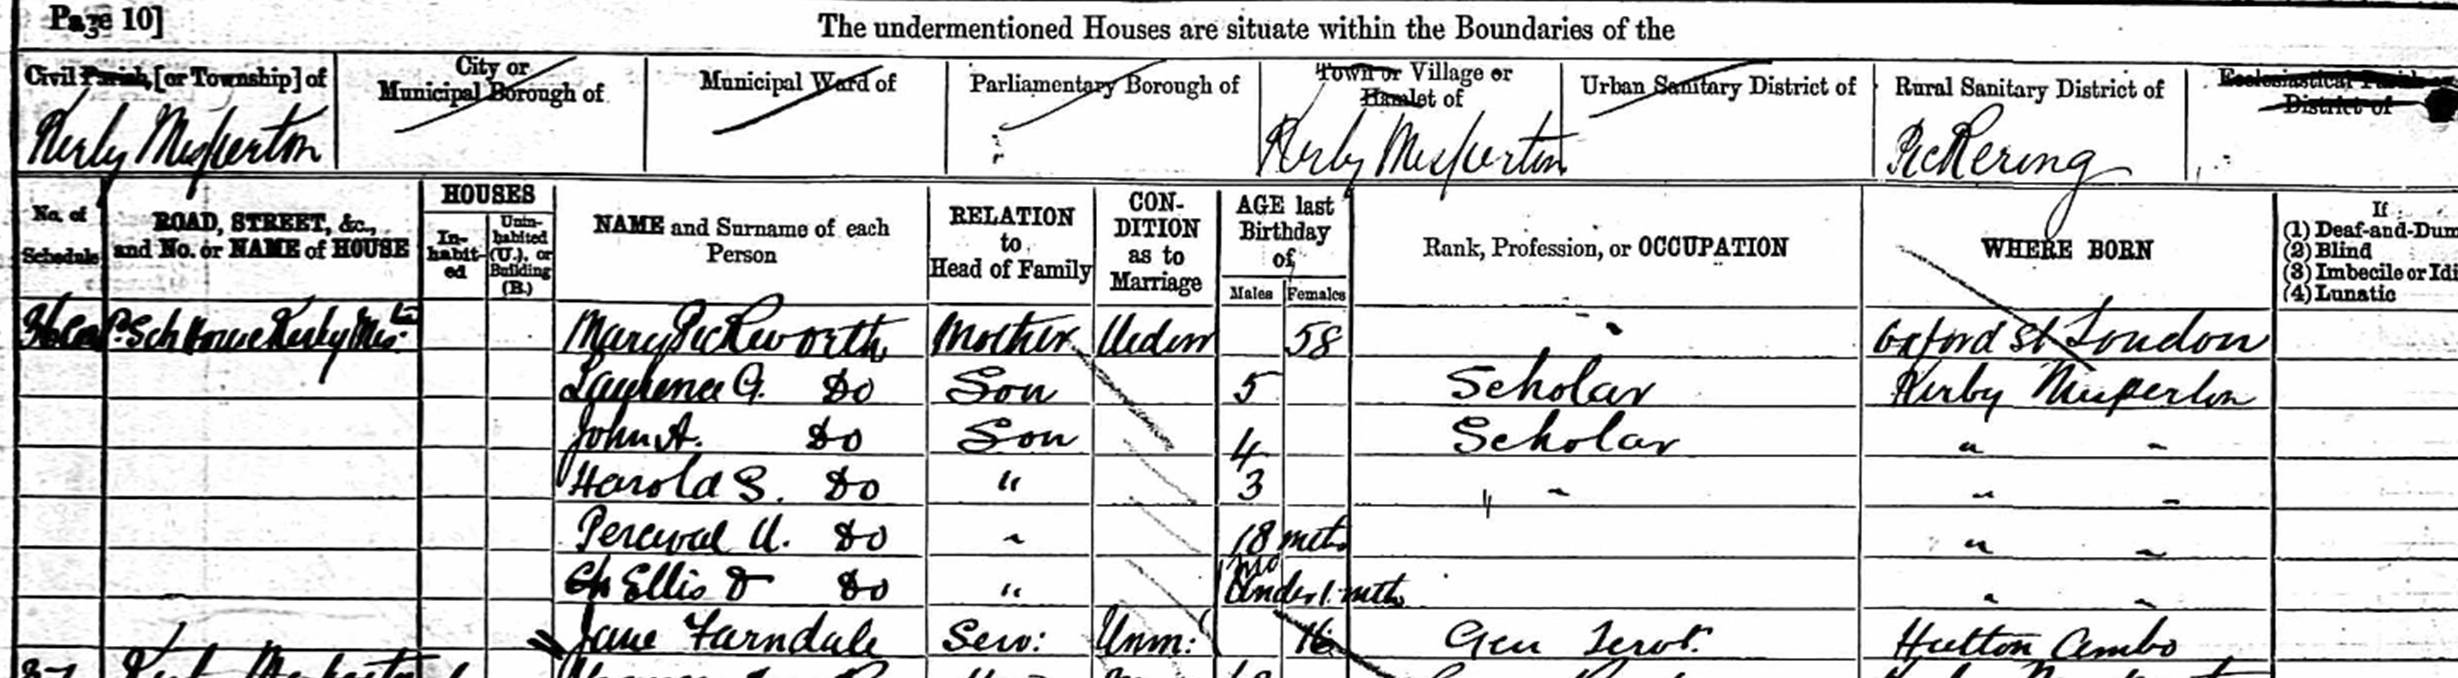 Page 10]
The undermentioned Houses are situate within the Boundaries of the
Civil Parish, [or Township] of City or Municipal Borough of Municipal Ward of Parliamentary Borough of Town or Village or Hamlet of Urban Sanitary District of Rural Sanitary District of Ecclesiastical Parish or District of
Kirby Misperton Kirby Misperton Pickering
No. of Schedule ROAD, STREET, &c., and No. or NAME of HOUSE HOUSES In-habit-ed Unin-habited (U.), or Building (B.) NAME and Surname of each Person RELATION to Head of Family CON-DITION as to Marriage AGE last Birthday of Males Females Rank, Profession, or OCCUPATION WHERE BORN If (1) Deaf-and-Dum (2) Blind (3) Imbecile or Idi (4) Lunatic
Sch House Kirby Mis:tn Mary Pickworth Mother Widow 58 Oxford St London
Laurence G. Do Son 5 Scholar Kirby Misperton
John A. Do Son 4 Scholar " "
Harold S. Do " 3 " "
Percival U. Do " 18 mths " "
Ch Ellis D Do " Under 1 mth " "
Jane Farndale Serv: Unm: 16 Gen Servt. Hutton Ambo